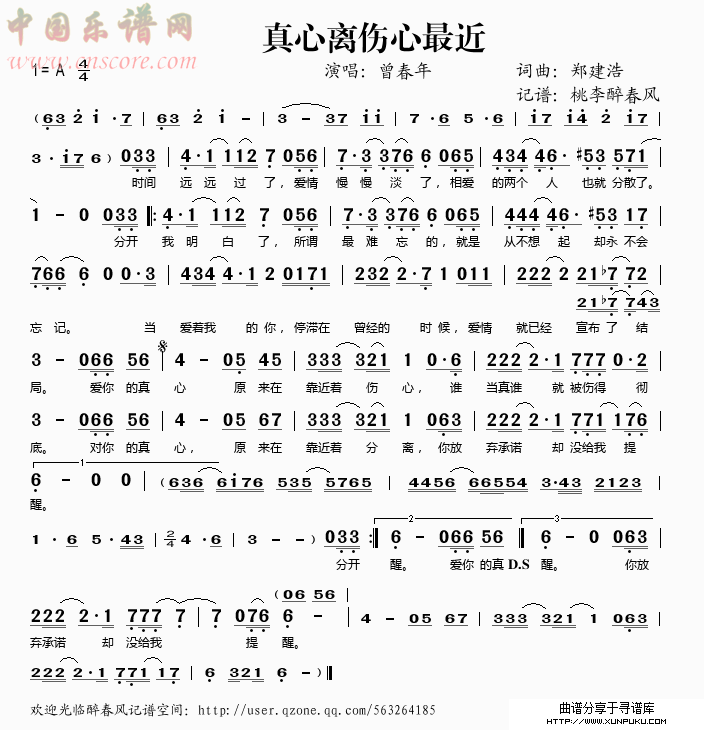 中国乐谱网
www.cnscore.com
真心离伤心最近
1=A 4/4 演唱：曾春年 词曲：郑建浩
记谱：桃李醉春风
(63 2 i · 7 | 63 2 i - | 3 - 37 ii | 7 · 6 5 · 6 | i7 i4 2 i7 |
3 · i76) 033 | 4 · 1 112 7 056 | 7 · 3 376 6 065 | 434 46 · #53 571 |
时间 远远过了，爱情 慢慢淡了，相爱 的两个 人 也就分散了。
1 - 0 033 |: 4 · 1 112 7 056 | 7 · 3 376 6 065 | 444 46 · #53 17 |
分开 我明白了，所谓 最难忘的，就是 从不想 起 却永不会
766 6 0 0 · 3 | 434 4 · 1 2 0171 | 232 2 · 7 1 011 | 222 2 21♭7 72 |
21♭7 743
忘记。 当 爱着我 的你，停滞在 曾经的 时候，爱情 就已经 宣布了结
3 - 066 56 | 4 - 05 45 | 333 321 1 0 · 6 | 222 2 · 1 777 0 · 2 |
局。 爱你的真 心 原来在 靠近着 伤心，谁 当真谁 就被伤得 彻
3 - 066 56 | 4 - 05 67 | 333 321 1 063 | 222 2 · 1 771 176 |
底。 对你的真 心，原来在 靠近着 分离，你放 弃承诺 却没给我 提
1
6 - 0 0 | (636 6i76 535 5765 | 4456 66554 3·43 2123 |
醒。
1 · 6 5 · 43 | 2/4 4 · 6 | 3 - -) 033 :| 2 6 - 066 56 :| 3 6 - 0 063 |
分开 醒。 爱你的真 D.S 醒。 你放
(06 56 |
222 2 · 1 777 7 | 7 076 6 - | 4 - 05 67 | 333 321 1 063 |
弃承诺 却没给我 提 醒。
222 2 · 1 771 17 | 6 321 6 -) ‖
欢迎光临醉春风记谱空间：http://user.qzone.qq.com/563264185
曲谱分享于寻谱库
HTTP://WWW.XUNPUKU.COM